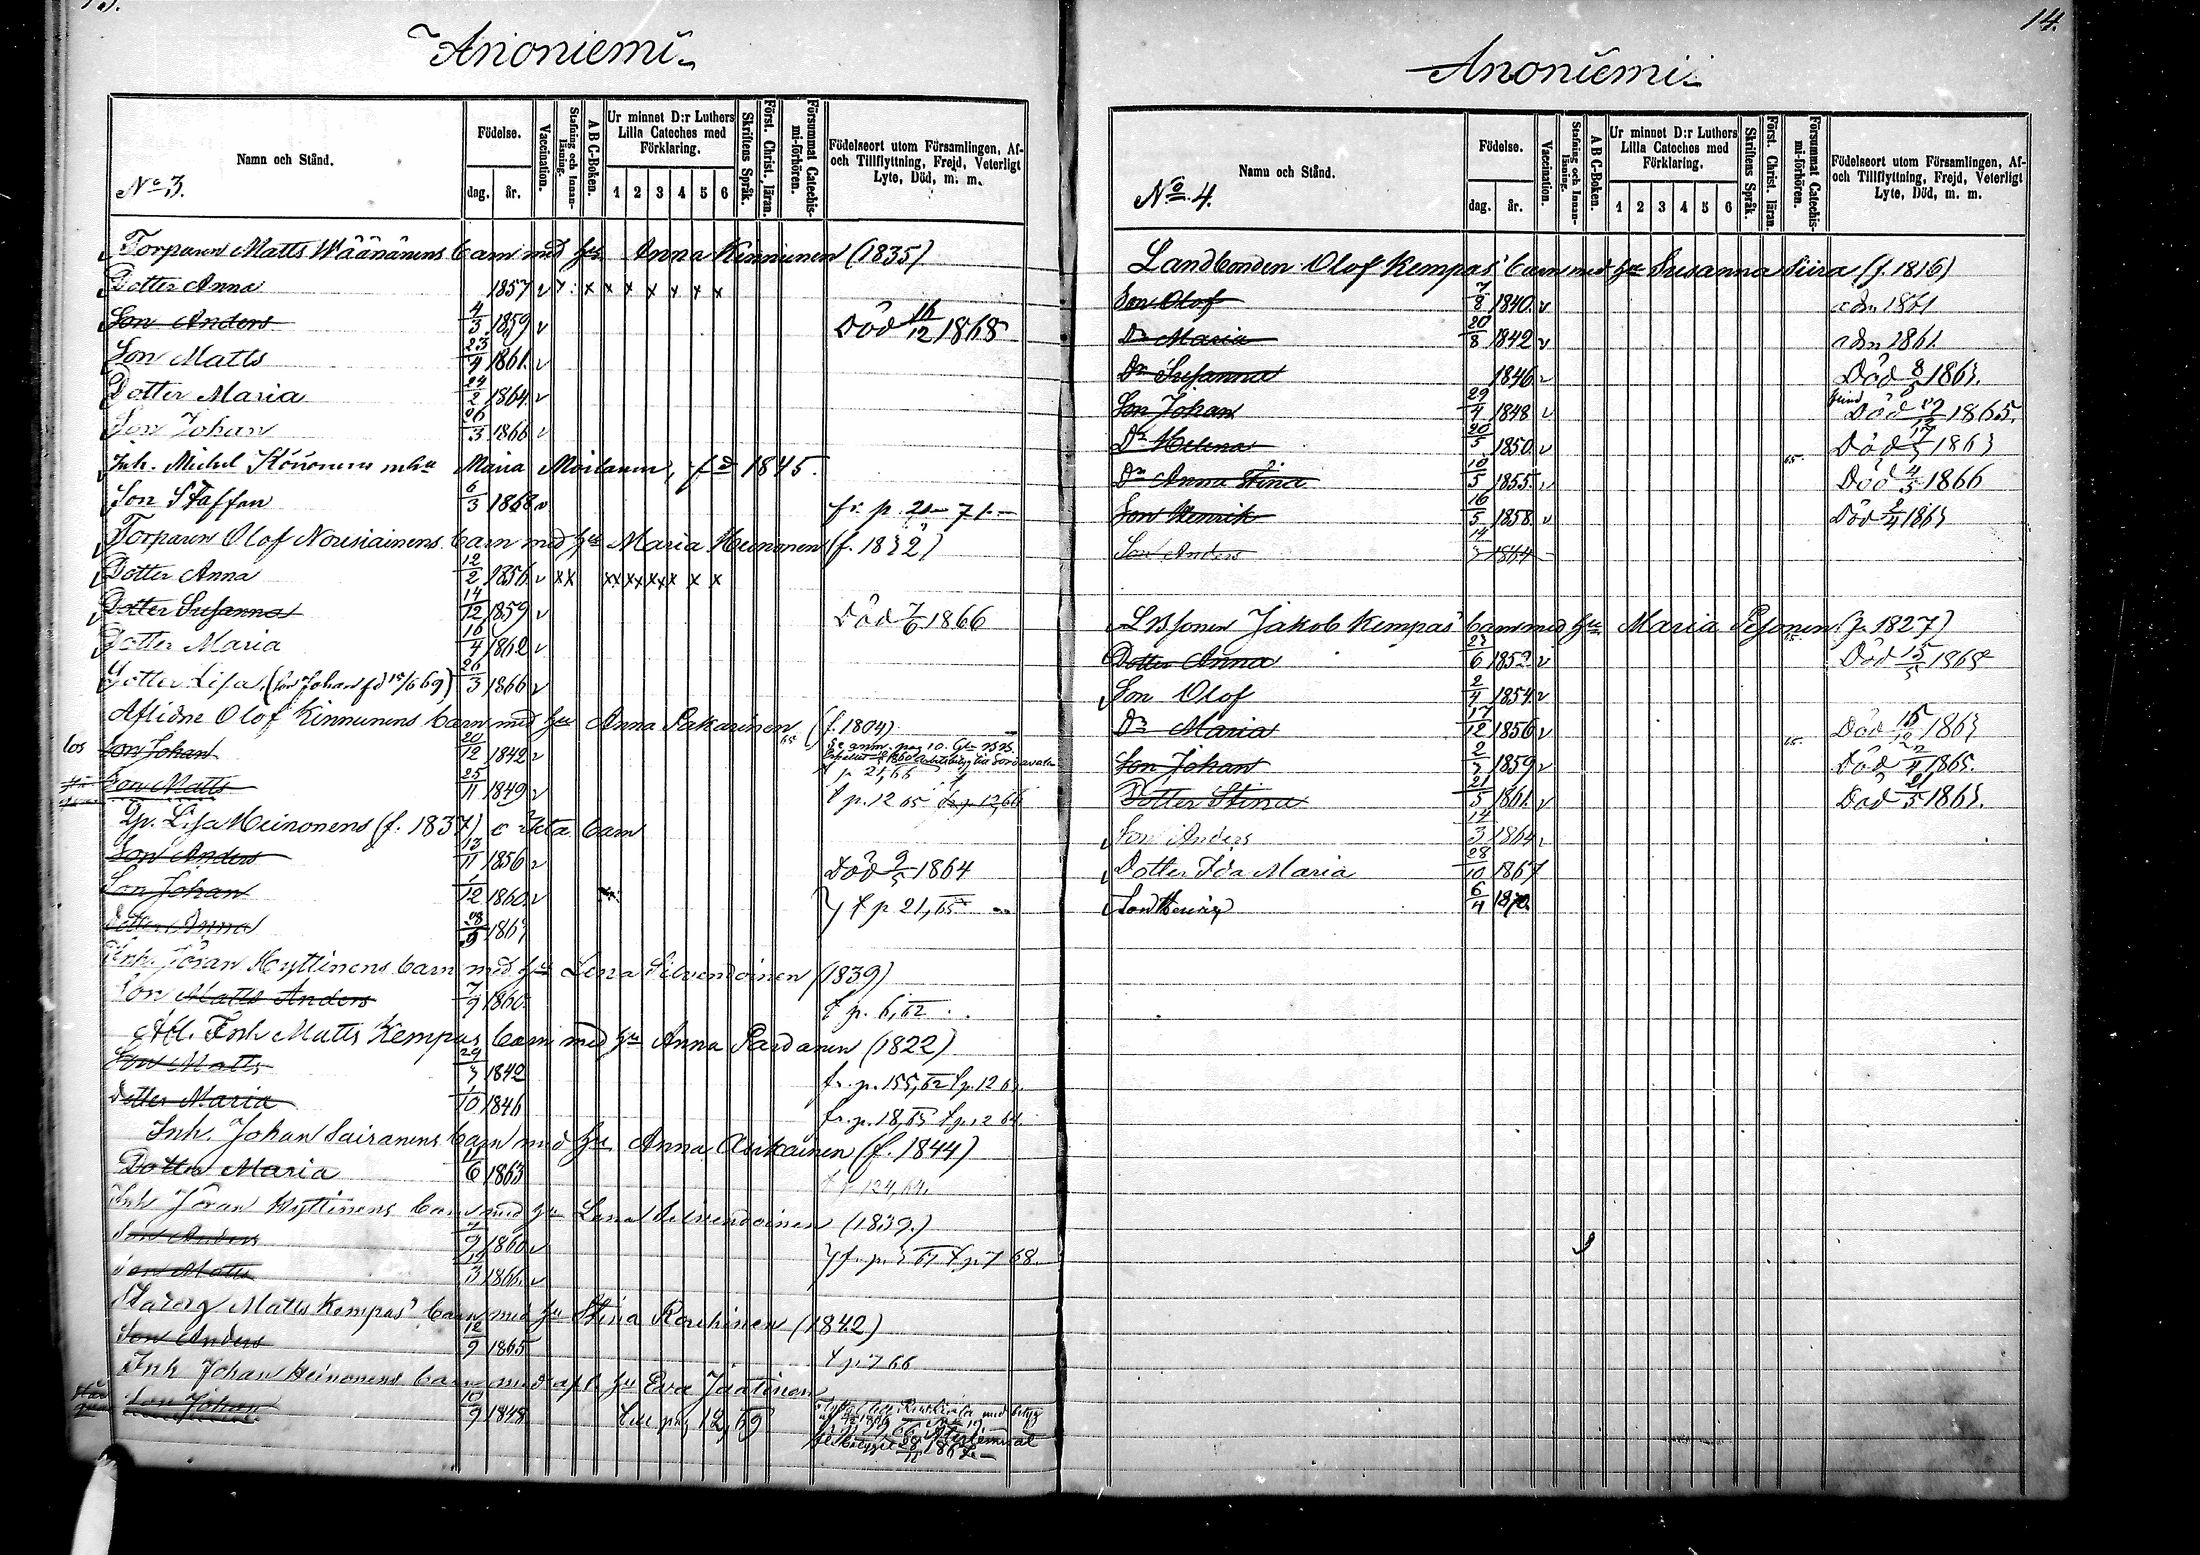 Anoniemi
Namn och Stånd.
Födelse.
dag.
år.
Vaccination.
Stafning och Innanläsning.
A B C-Boken.
Ur minnet D:r Luthers Lilla Cateches med Förklaring.
1 2 3 4 5 6
Skriftens Språk.
Först. Christ. läran.
Försummat Catechismi-förhören.
Födelseort utom Församlingen, Af- och Tillflyttning, Frejd, Veterligt Lyte, Död, m. m.
No 3.
Torparen Matts Wäänänens barn med hu Anna Kinnunen (1835)
Dotter Anna 1857 v x x x x x x
Son Anders 4/3 1859 v Död 16/12 1868
Son Matts 23/9 1861 v
Dotter Maria 24/2 1864 v
Son Johan 26/3 1866 v
Inh. Michel Könönens m hu Maria Moilanen, fd 1845.
Son Staffan 6/3 1868 v fr. p. 21 71
Torparen Olof Nousiainens barn med hu Maria Heinonen (f. 1832)
Dotter Anna 12/2 1856 v xx xx xx xx x x
Dotter Susanna 14/12 1859 v Död 7/6 1866
Dotter Maria 16/4 1862 v
Dotter Lisa (son Johan fd 15/6 69) 26/3 1866 v
Aflidne Olof Kinnunens barn med hu Anna Pakarinen (f. 1804)
Son Johan 20/12 1842 v Se anm. pag 10.
p 21,66
Son Matts 25/11 1849 v t p. 12 65 fr p. 12,66
Lisa Heinonens (f. 1837) o ägta barn
Son Anders 13/11 1856 v Död 9/5 1864
Son Johan 1/12 1860 v t p 21, 65
Dotter Anna 28/9 1863
Inh. Jöran Hyttinens barn med hu Lena Silvendoinen (1839)
Son Matts Anders 7/9 1860 t p. 6, 62
Afl. Inh. Matts Kempas barn med hu Anna Pardanen (1822)
Son Matts 29/3 1842 fr. p. 155, 62 t p. 12 63.
Dotter Maria 1/10 1846 fr. p. 18, 63 t p. 12 64.
Inh. Johan Sairanens barn med hu Anna Asikainen (f. 1844)
Dotter Maria 11/6 1863 t p 124, 64.
Inh Jöran Hyttinens barn med hu Lena Silvendoinen (1839.)
Son Anders 7/9 1860 v
Son Matts 3 1866 v t p. 7 68.
Matts Kempas' barn med hu Stina Rouhinen (1842)
Son Anders 12/9 1865 t p. 7 66
Inh Johan Heinonens barn med afl hu Eva Jäätinen
Son Johan 10/9 1848 till pag 12, 69
med betyg
14.
Anoniemi
Namn och Stånd.
Födelse.
dag.
år.
Vaccination.
Stafning och Innanläsning.
A B C-Boken.
Ur minnet D:r Luthers Lilla Cateches med Förklaring.
1 2 3 4 5 6
Skriftens Språk.
Först. Christ. läran.
Försummat Catechismi-förhören.
Födelseort utom Församlingen, Af- och Tillflyttning, Frejd, Veterligt Lyte, Död, m. m.
No 4.
Landbonden Olof Kempas' barn med hu Susanna Siira (f. 1816)
Son Olof 7/8 1840. v adm 1861
Dr Maria 20/8 1842 v adm 1861.
Dr Susanna 1846 v Död 8/5 1863.
Son Johan 29/4 1848 v Död 1865.
Dr Helena 20/5 1850 v Död 17/5 1863
Dr Anna Stina 10/5 1855. v 65. Död 4/5 1866
Son Henrik 16/5 1858. v Död 2/4 1863
Son Anders 14/3 1864
Jakob Kempas' barn med hu Maria Pesonen (f. 1827)
Dotter Anna 23/6 1852 v 65. Död 15/5 1868
Son Olof 2/4 1854 v
Dr Maria 17/12 1856 v Död 15/12 1863
Son Johan 2/3 1859 v 65. Död 1865.
Dotter Stina 21/5 1861. v Död 21/5 1863.
Son Anders 14/3 1864 v
Dotter Ida Maria 28/10 1867
Son Henrik 6/4 1870.